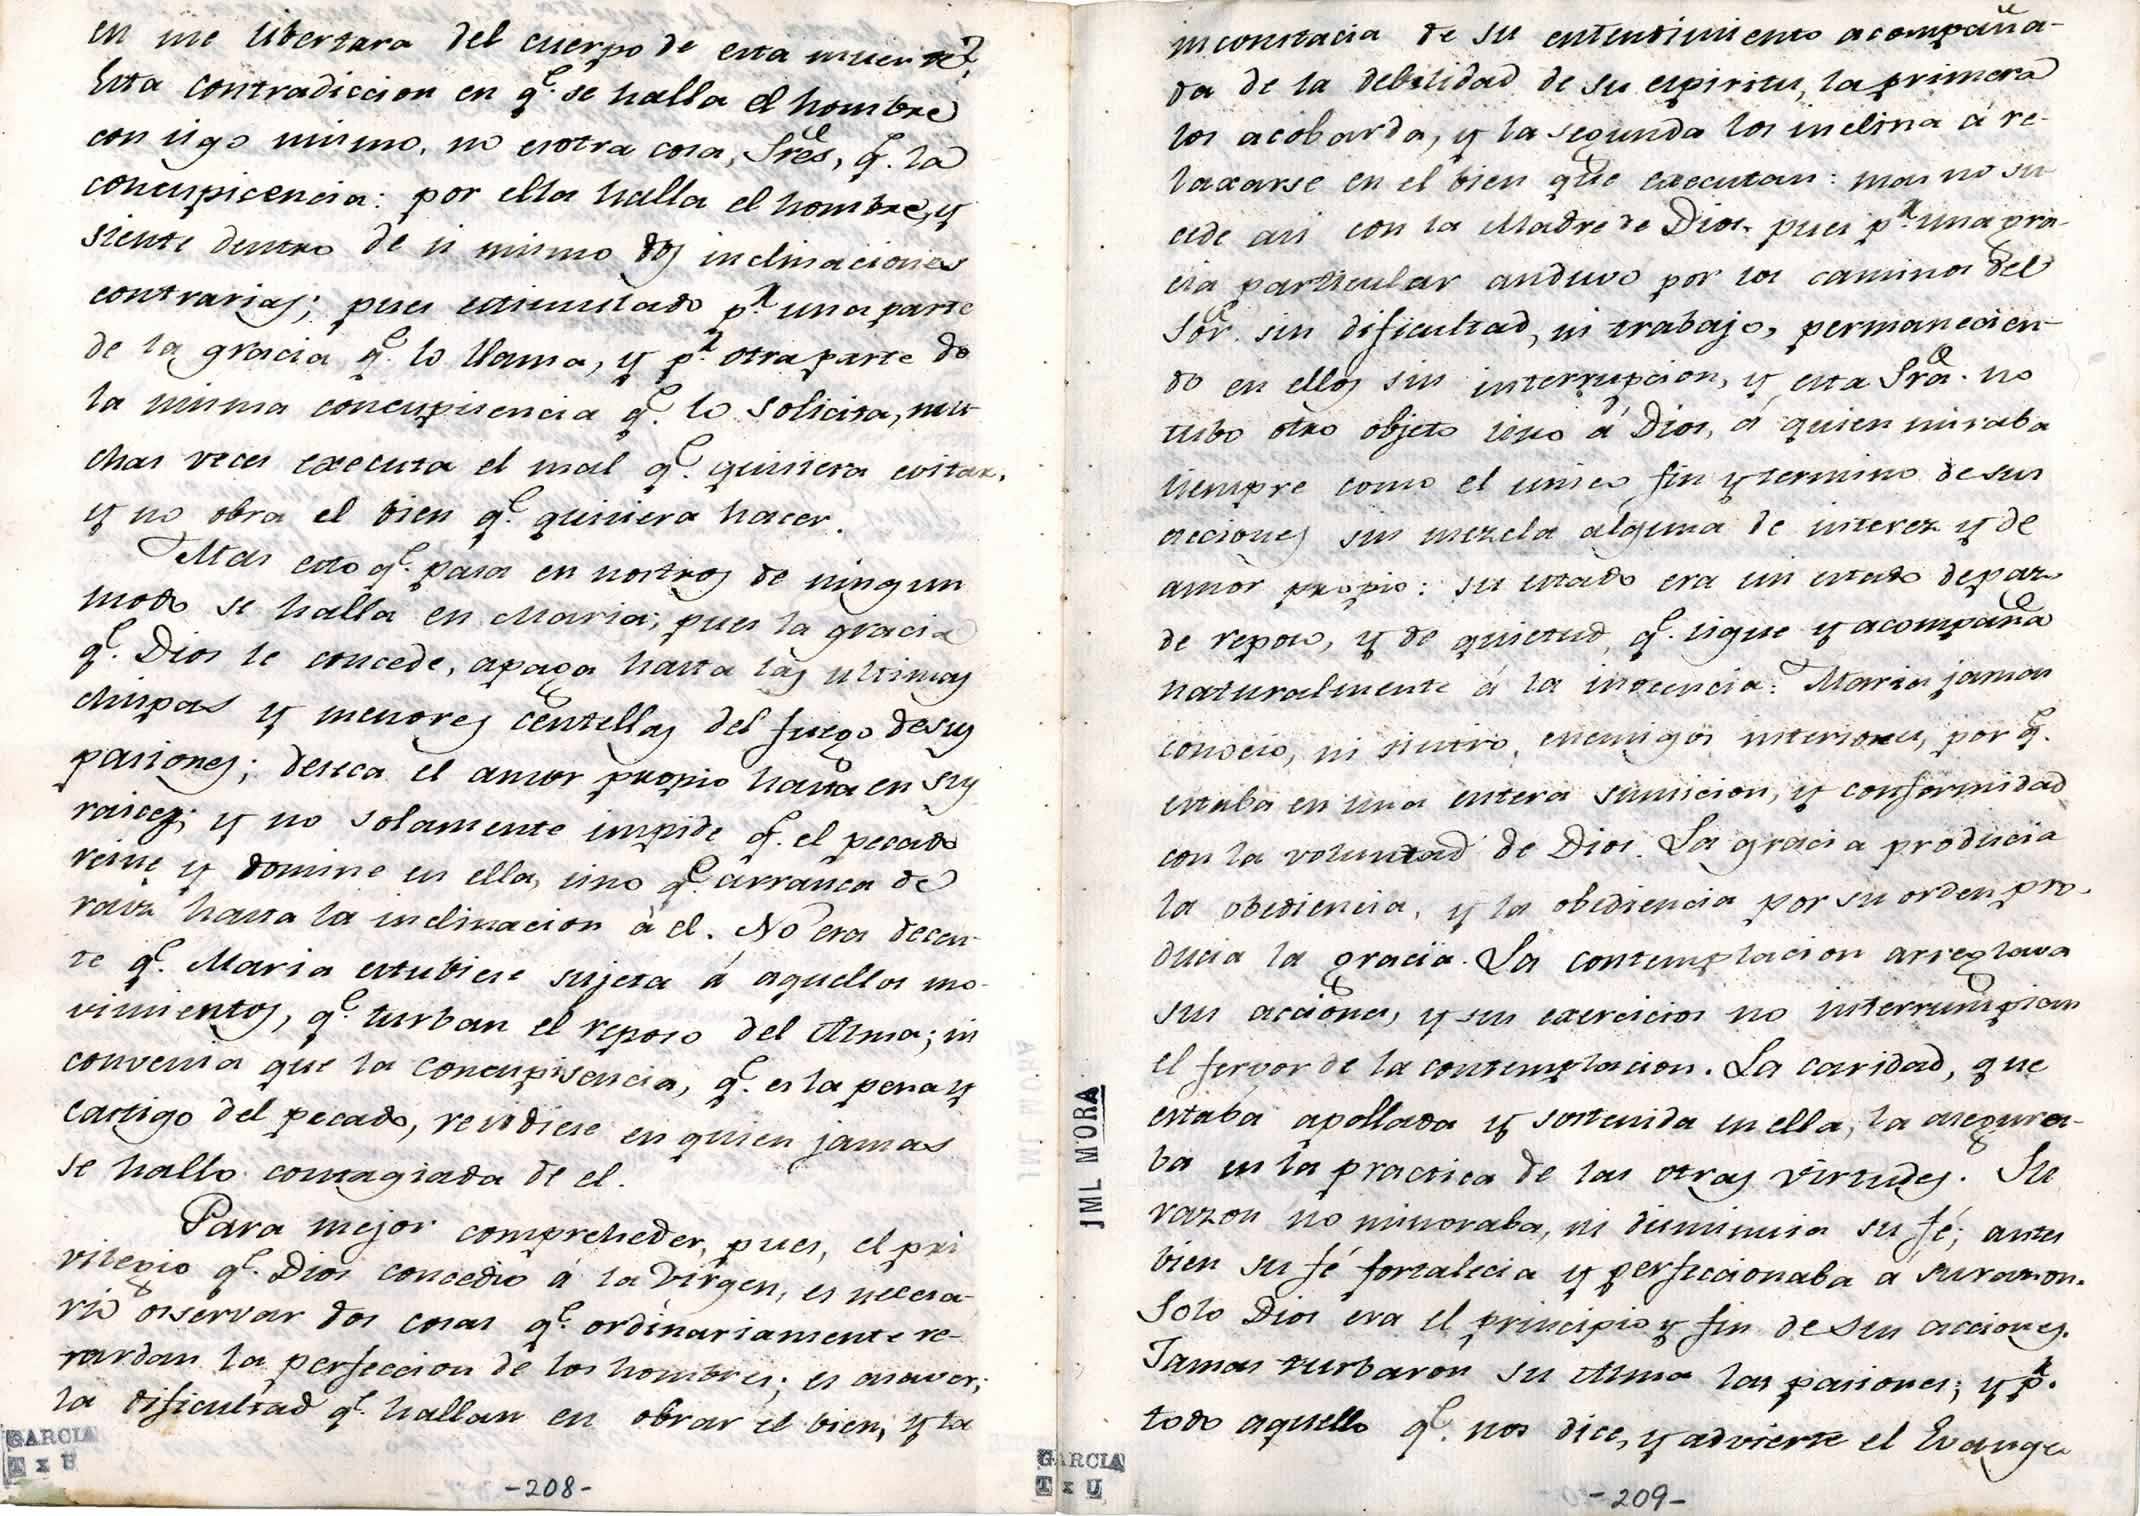 en me libertara del cuerpo de esta muerte?
Esta contradiccion en q.e se halla el hombre
consigo mismo, no es otra cosa, Sres, q.e la
concupicencia: por ella halla el hombre, y
siente dentro de si mismo dos inclinaciones
contrarias; pues estimulado p.r una parte
de la gracia q.e lo llama, y p.r otra parte de
la misma concupisencia q.e lo solicita, mu-
chas veces executa el mal q.e quisiera evitar,
y no obra el bien q.e quisiera hacer.
Mas esto q.e pasa en nostros de ningun
modo se halla en Maria; pues la gracia
q.e Dios le concede, apaga hasta las ultimas
chispas y menores centellas del fuego de sus
pasiones; deseca el amor propio hasta en sus
raices; y no solamente impide q.e el pecado
reine y domine en ella, sino q.e arranca de
raiz hasta la inclinacion à el. No era decen-
te q.e Maria estubiese sujeta á aquellos mo-
vimientos, q.e turban el reposo del Alma; ni
convenia que la concupisencia, q.e es la pena y
castigo del pecado, recidiese en quien jamas
se hallo contagiada de el.
Para mejor compreheder, pues, el pri
vilegio q.e Dios concedio á la Virgen, es necesa-
rio osservar dos cosas q.e ordinariamente re-
tardan la perfeccion de los hombres; es asaver;
la dificultad q.e hallan en obrar el bien, y la
GARCIA
T x U
-208-
inconstacia de su entendimiento acompaña-
da de la debilidad de su espiritu, la primera
los acobarda, y la segunda los inclina á re-
laxarse en el bien que executan: mas no su
cede asi con la Madre de Dios, pues p.r una gra-
cia particular anduvo por los caminos del
Sor. sin dificultad, ni trabajo, permanecien-
do en ellos sin interrupcion, y esta Sra. no
tubo otro objeto sino á Dios, á quien miraba
siempre como el unico fin y termino de sus
acciones sin mezcla alguna de interez y de
amor propio: su estado era un estado de paz
de reposo, y de quietud, q.e sigue y acompaña
naturalmente á la inocencia: Maria jamas
conocio, ni sintio, enemigos interiores, por q.e
estaba en una entera sumicion, y conformidad
con la voluntad de Dios. La gracia producia
la obediencia, y la obediencia por su orden pro-
ducia la gracia. La contemplacion arreglava
sus acciones, y sus exercicios no interrumpian
el fervor de la contemplacion. La caridad, que
estaba apollada y sostenida en ella, la asegura-
ba en la practica de las otras virtudes. Su
razon no minoraba, ni disminuia su fé; antes
bien su fé fortalecia y perfeccionaba a su razon.
Solo Dios era el principio y fin de sus acciones.
Jamas turbaron su Alma las pasiones; y p.r
todo aquello q.e nos dice, y advierte el Evange
JML MORA
GARCIA
T x U
-209-